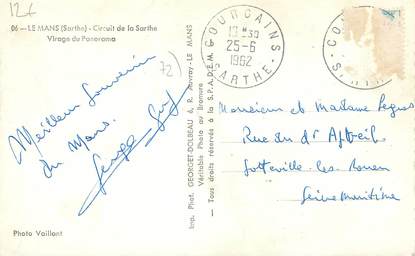 06 - LE MANS (Sarthe) - Circuit de la Sarthe
Virage du Panorama
Meilleur Souvenir
du Mans.
Photo Vaillant
Imp. Phot. GEORGET-DOLBEAU 6, R. Auvray - LE MANS
Véritable Photo au Bromure
— Tous droits réservés à la S.P.A.D.E.M. —
GOURGAINS
25-6
1962
SARTHE
Monsieur et Madame
Rue du dr
Sotteville les Rouen
Seine Maritime